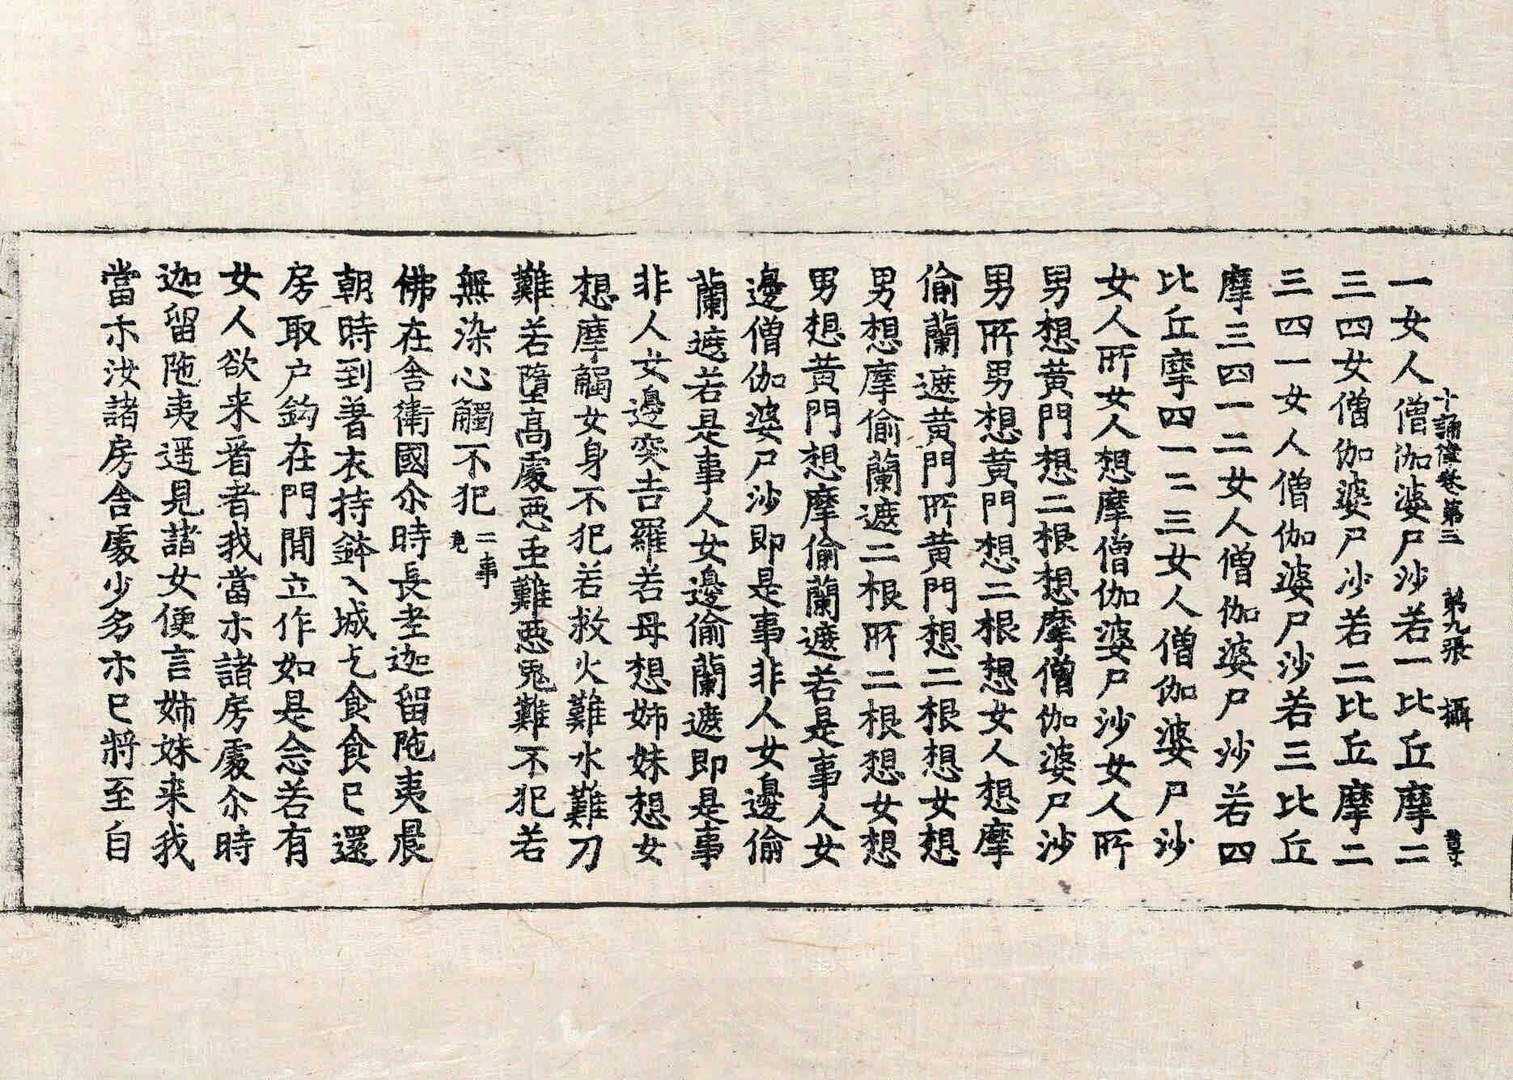 十誦律卷第三 第九張 攝
一女人僧伽婆尸沙若一比丘摩二
三四女僧伽婆尸沙若二比丘摩二
三四一女人僧伽婆尸沙若三比丘
摩三四一二女人僧伽婆尸沙若四
比丘摩四一二三女人僧伽婆尸沙
女人所女人想摩僧伽婆尸沙女人所
男想黄門想二根想摩僧伽婆尸沙
男所男想黄門想二根想女人想摩
偷蘭遮黄門所黄門想二根想女想
男想摩偷蘭遮二根所二根想女想
男想黄門想摩偷蘭遮若是事人女
邊僧伽婆尸沙即是事非人女邊偷
蘭遮若是事人女邊偷蘭遮即是事
非人女邊突吉羅若母想姉妹想女
想摩觸女身不犯若救火難水難刀
難若墮高處惡虫難惡鬼難不犯若
無染心觸不犯二事竟
佛在舍衛國尒時長老迦留陁夷晨
朝時到著衣持鉢入城乞食食已還
房取户鈎在門間立作如是念若有
女人欲来看者我當示諸房處尒時
迦留陁夷遥見諸女便言姉妹来我
當示汝諸房舍處少多示已將至自